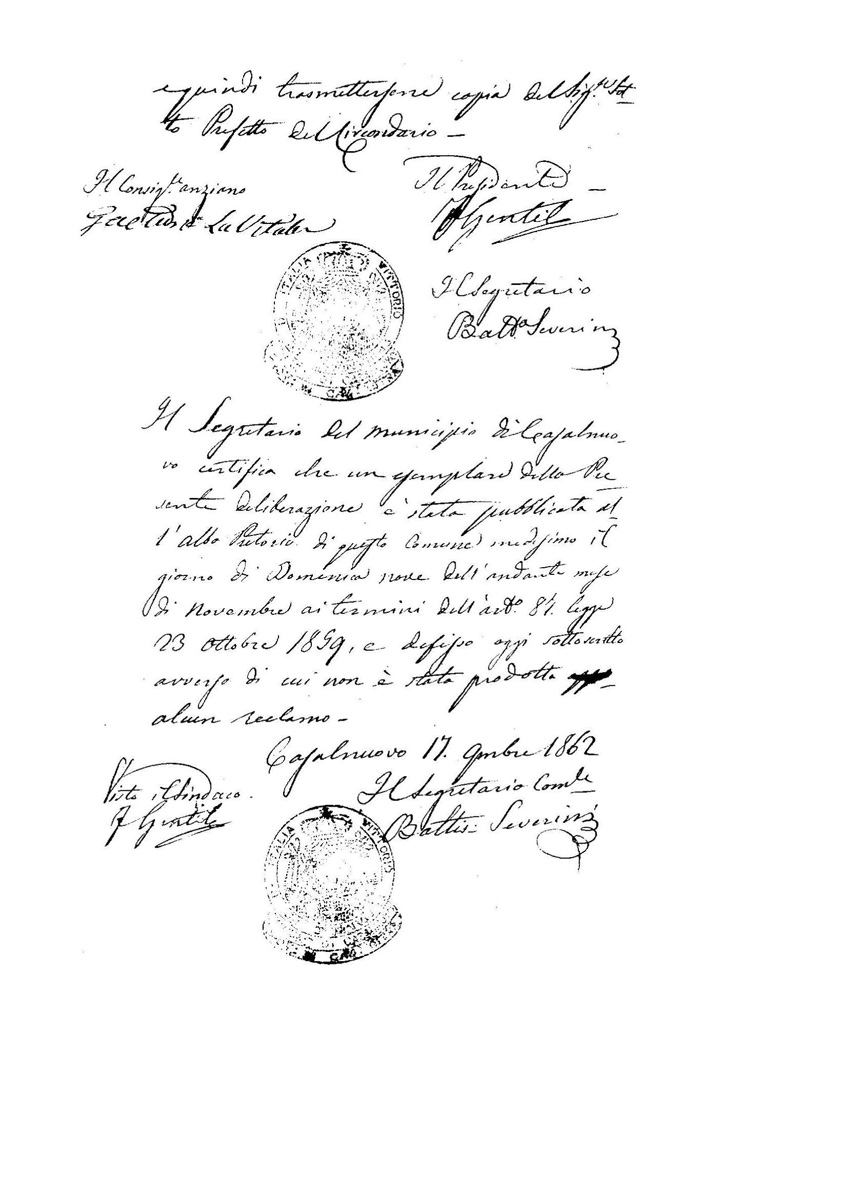 e quindi trasmettersene copia del Sig.r Sot-
to Prefetto del Circondario –
Il Consigl.e anziano
Il Presidente –
Gaetano La Vitola
F Gentile
ITALIA VITTORIO
Il Segretario
Batt.a Severini
Il Segretario del municipio di Casalnuo-
vo certifica che un esemplare della Pre
sente deliberazione è stata pubblicata al
l'albo Pretorio di questo Comune medesimo il
giorno di Domenica nove dell'andante mese
di Novembre ai termini dell'arto. 87. legge
23 ottobre 1859, e defisso oggi sottoscritto
avverso di cui non è stata prodotta
alcun reclamo –
Casalnuovo 17. 9mbre 1862
Visto il Sindaco.
Il Segretario Com.le
F Gentile
Battis. Severini
ITALIA VITTORIO